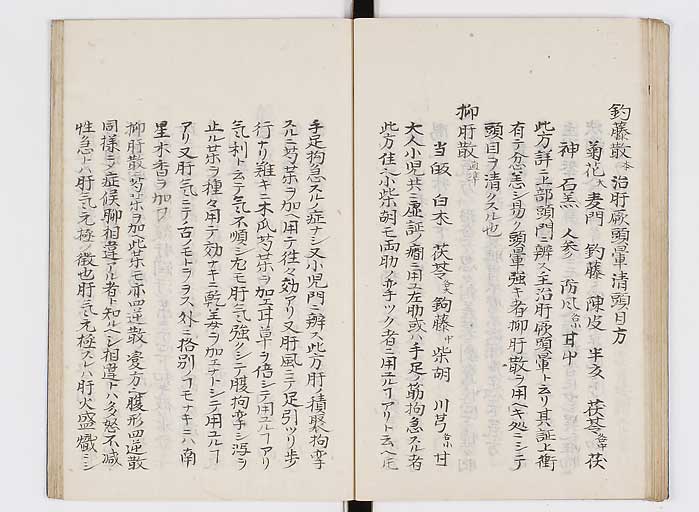 釣藤散 本 治肝厥頭暈清頭目方
菊花 大 麦門 釣藤 陳皮 半夏 茯苓 各中 茯
神 石羔 人参 防风 各小 甘中
此方詳ニ上部頭門ニ辨ス主治肝厥頭暈ト云リ其証上衝
有テ忿恚シ易ク頭暈強キ者抑肝散ヲ用ヘキ処ニシテ
頭目ヲ清クスル也
抑肝散
当飯 白朮 茯苓 各大 釣藤 中 柴胡 川芎 各小 甘
大人小児共ニ虚証ノ癇ニ用ユ左肋或ハ手足ノ筋拘急スル者
此方住ハ小柴胡モ両肋ノ牽ツク者ニ用ユルコアリト云ヘ𪜈
手足拘急スルノ症ナシ又小児門ニ辨ス此方肝ノ積聚拘攣
スルニ芍薬ヲ加ヘ用テ往々効アリ又肝風ニテ足引ツリ歩
行ナリ難キニ木瓜芍薬ヲ加エ甘草ヲ倍シテ用ユルコアリ
気利ト云テ気不順シ尤モ肝気強クシテ腹拘攣シ瀉ヲ
止ル薬ヲ種々用テ効ナキニ乾姜ヲ加エナトシテ用ユルコ
アリ又肝気ニテ古ノモトヲヲス外ニ格別ノコモナキニハ南
星木香ヲ加フ
抑肝散芍薬ヲ加ヘ此薬モ亦四逆散ノ変方ニ腹形四逆散
同様ニテ症候聊相違アル者ト知ルヘシ相違トハ多怒不
性急トハ肝気元極ノ徴也肝気元極スレハ肝火盛熾ニシ